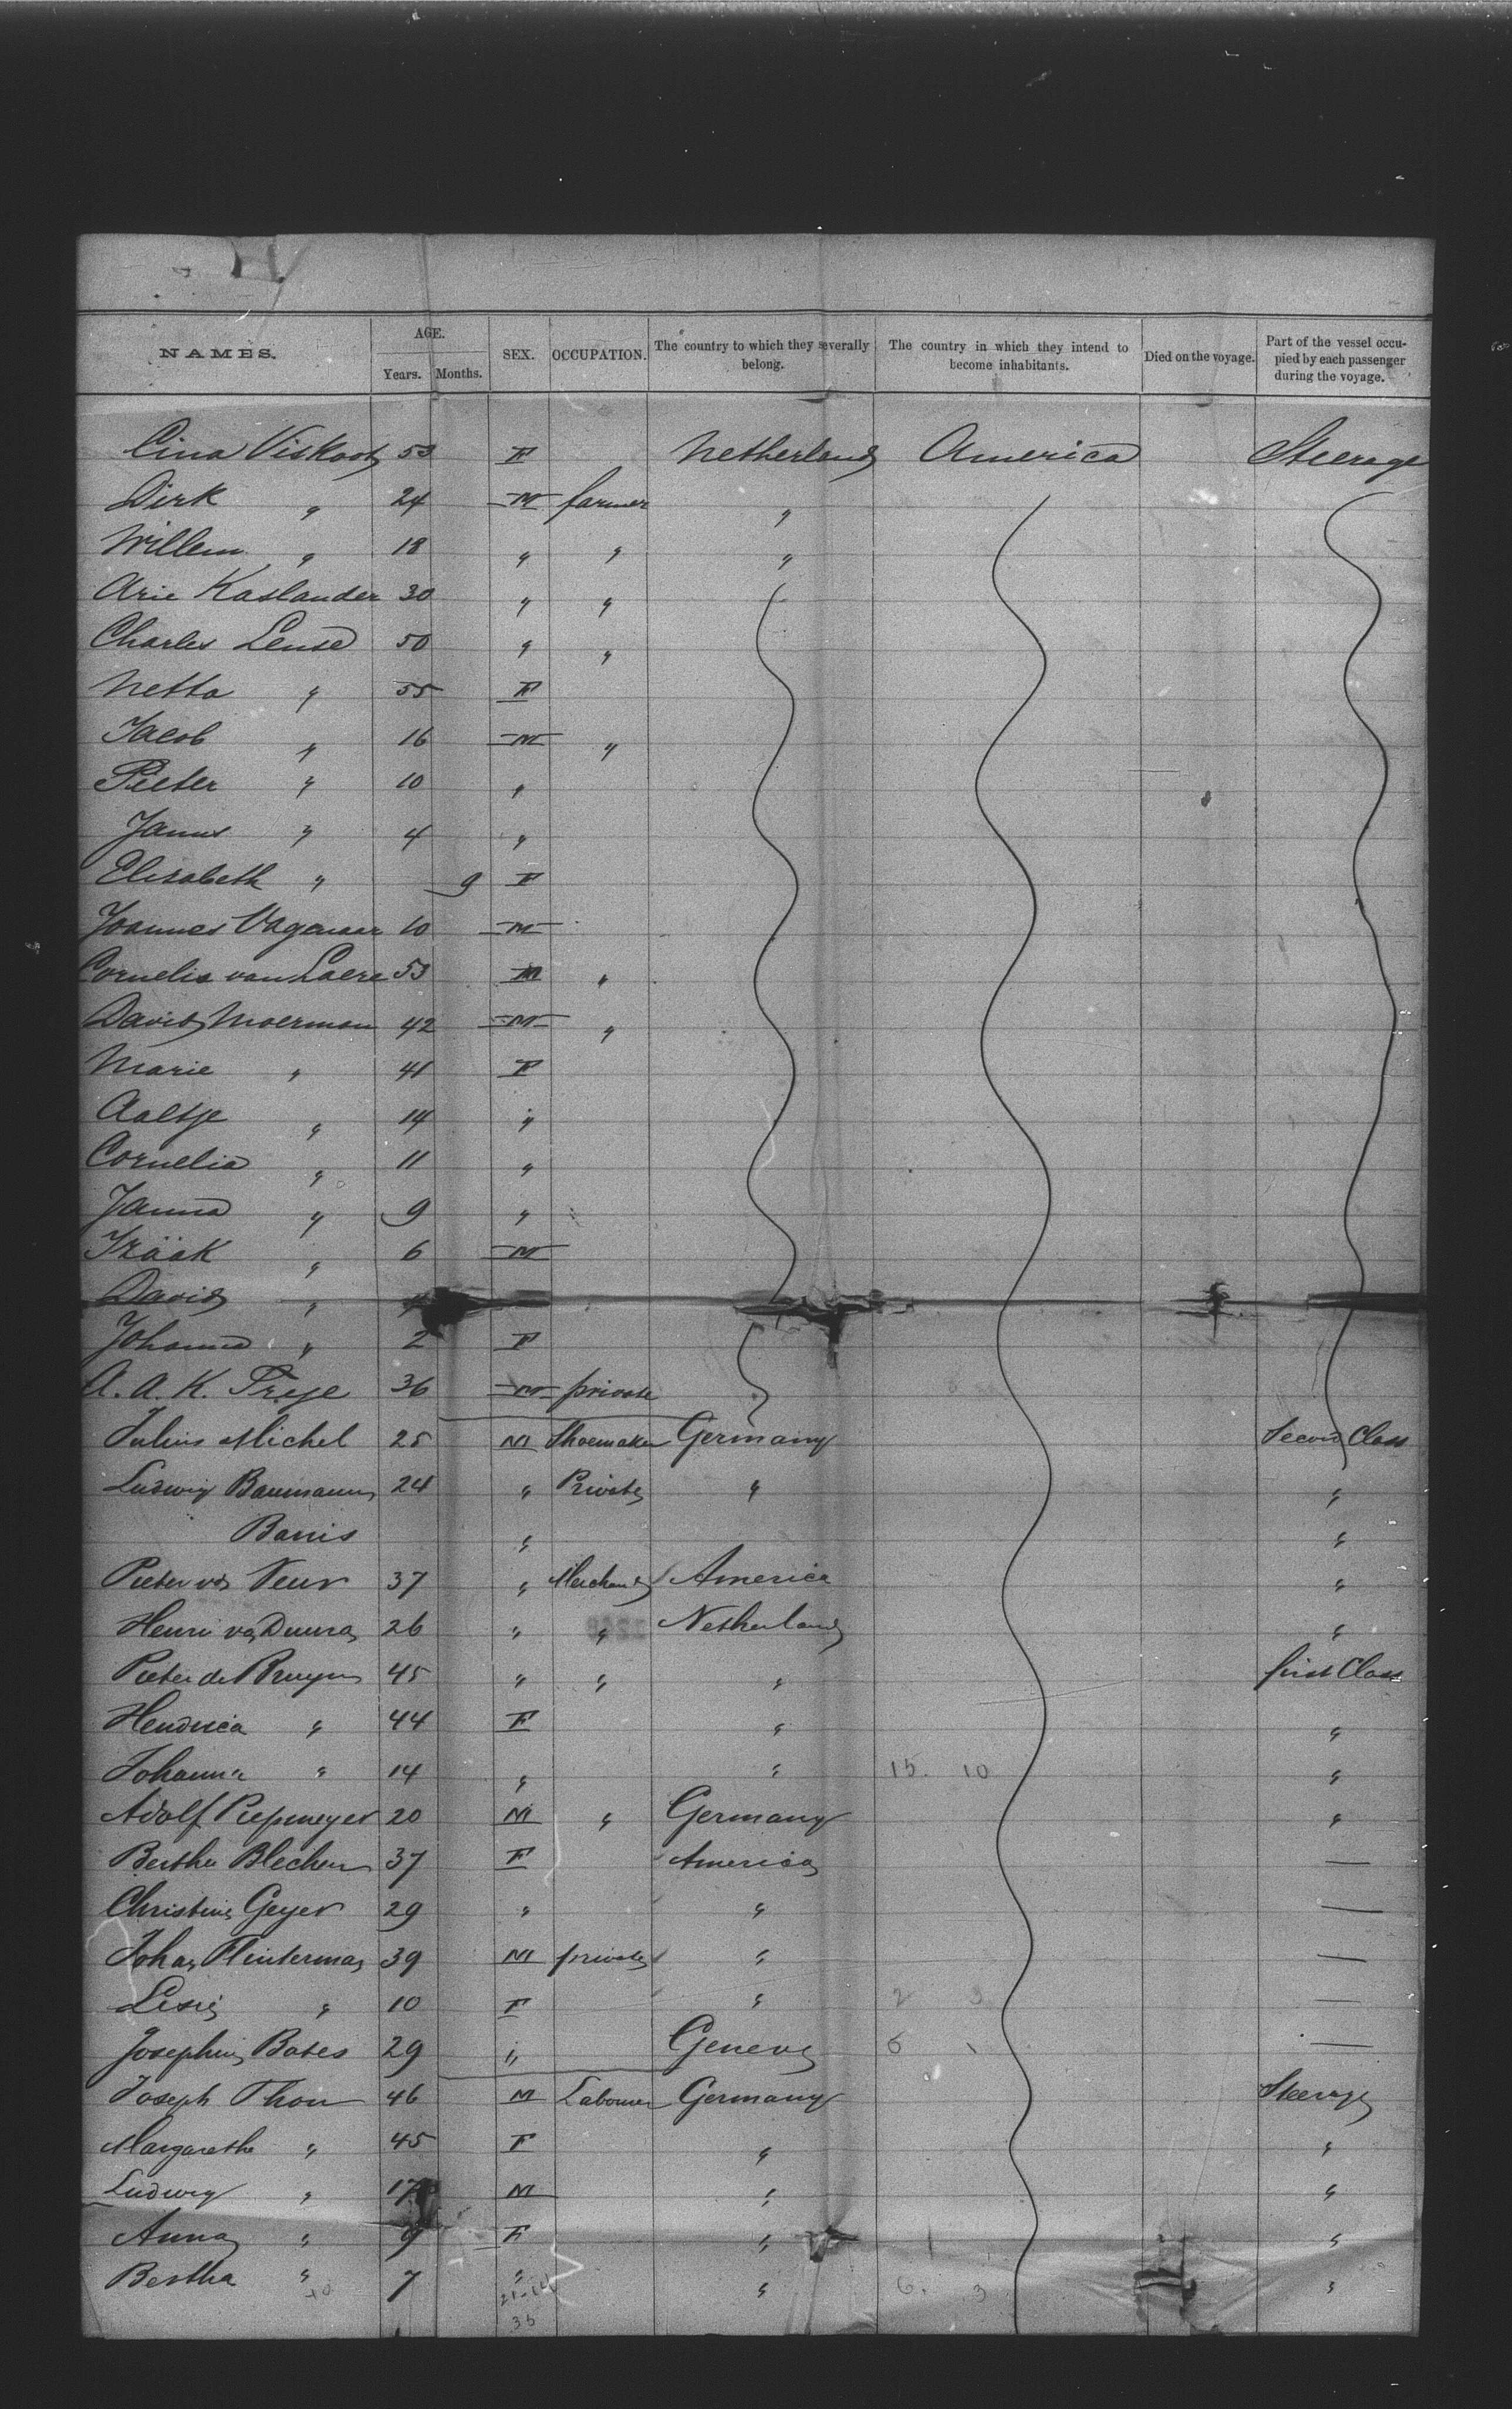 NAMES. AGE. Years. Months. SEX. OCCUPATION. The country to which they severally belong. The country in which they intend to become inhabitants. Died on the voyage. Part of the vessel occupied by each passenger during the voyage.
Cina Viskoots 53 F Netherlands America Steerage
Dirk " 24 M farmer "
Willem " 18 " " "
Arie Kaslander 30 " "
Charles Lense 50 " "
Netta " 55 F
Jacob " 16 M "
Pieter " 10 "
Janus " 4 "
Elisabeth " 9 F
Joannes Wagenaar 10 M
Cornelis van Laere 53 M "
David Moerman 42 M "
Marie " 41 F
Aaltje " 14 "
Cornelia " 11 "
Janna " 9 "
Izäak " 6 M
David "
Johanna " 2 F
A. A. K. Freye 36 M private
Julius Michel 25 M Shoemaker Germany Second Class
Ludwig Baumann 24 " Private " "
Barris " "
Pieter vd Veur 37 " Merchant America "
Henri vd Duura 26 " " Netherland "
Pieter de Bruyn 45 " " " first Class
Hendrica " 44 F " "
Johanna " 14 " " 15. 10 "
Adolf Piepmeyer 20 M " Germany "
Bertha Blecher 37 F America —
Christine Geyer 29 " " —
Johan Flinterman 39 M private " —
Lisie " 10 F " 2 3 —
Josephine Bates 29 " Geneve 6 —
Joseph Thon 46 M Labourer Germany Steerage
Margarethe " 45 F " "
Ludwig " 17 M " "
Anna " 9 F " 1 "
Bertha " 7 " " 6. 3 "